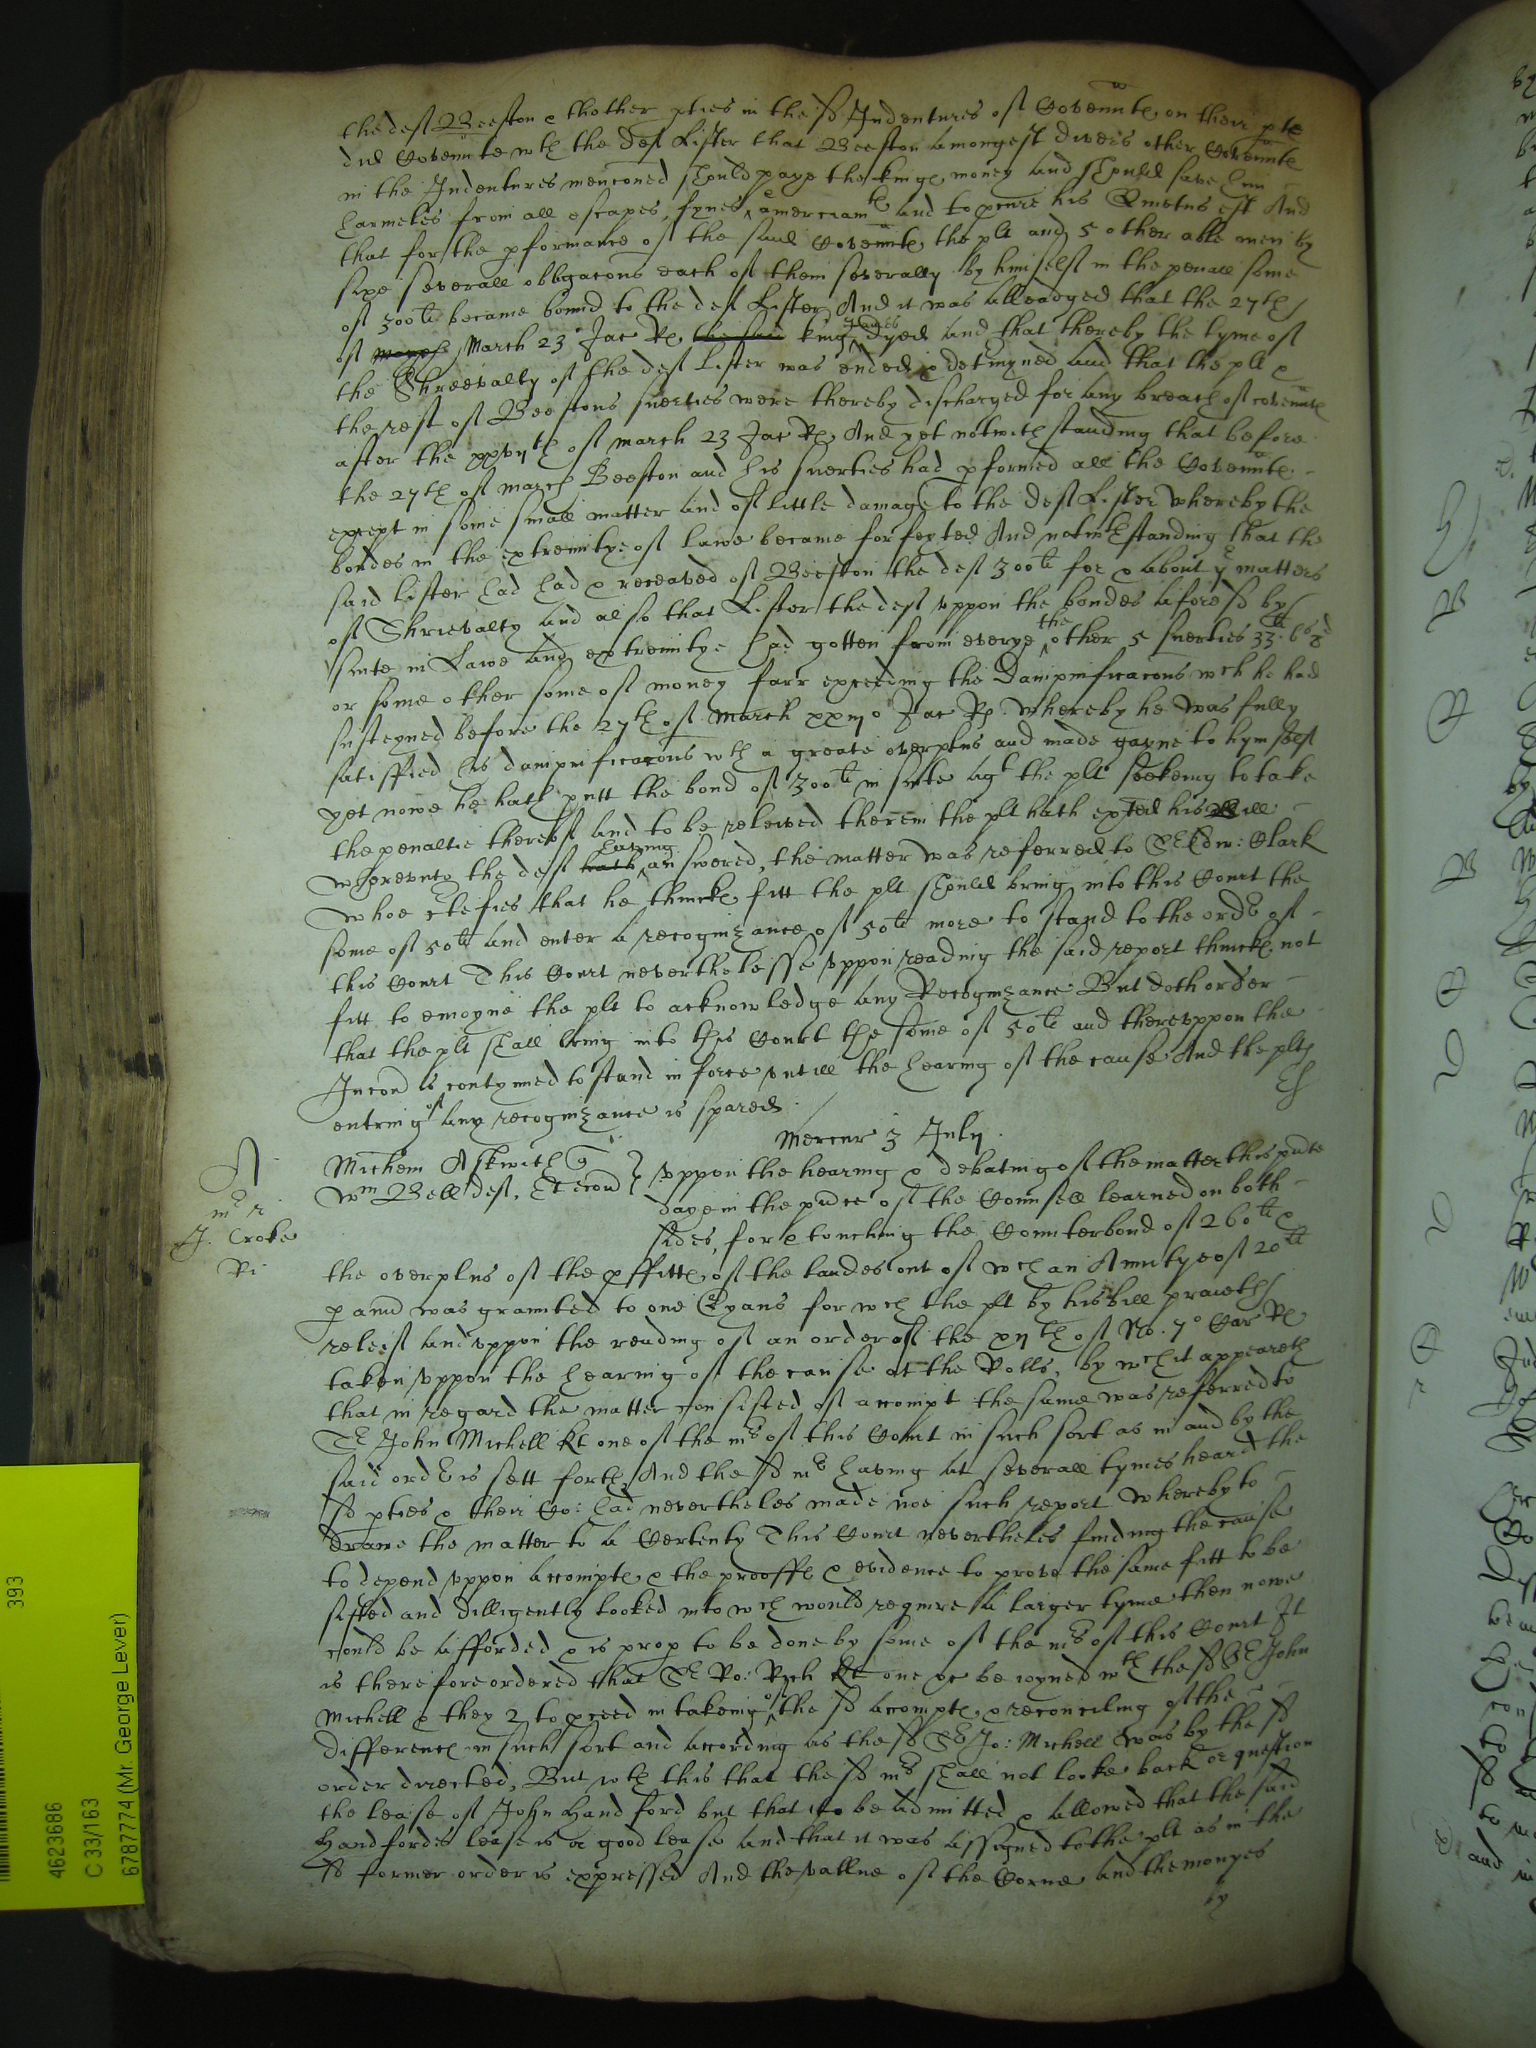 the deft Beeston & thother pties in the sd Indentures of Covennte on their pte
did Covennte wth the deft Lister that Beeston amongest divers other Covennte
in the Indentures menconed should paye the kinge money and should save him
harmeles from all escapes, fynes, & amerciamte and to pcure his Quietus est And
that for the pformance of the said Covennte the plt and 5 other able men by
sixe severall obligacons each of them severally by himself in the penall some
of 300li became bound to the deft Lister And it was alleadged that the 27th
of March 23 Jac Re, the said king James dyed and that thereby the tyme of
the Shreevalty of the deft Lister was ended & detmyned and that the plt &
the rest of Beestons suerties were thereby discharged for any breach of covennte
after the xxvijth of march 23 Jac Re, And yet notwithstanding that before
the 27th of march Beeston and his suerties had pformed all the Covennte
except in some small matter and of little damage to the deft Lister whereby the
bondes in the extremitye of lawe became forfeyted And notwthstanding that the
said Lister had had & receaved of Beeston the deft 300li for & about ye matters
of Shrievalty and also that Lister the deft uppon the bondes aforesd by
suite in Lawe and extremitye had gotten from everye the other 5 suerties 33li 6s 8d
or some other some of money farr exceeding the Dampnificacons wch he had
susteyned before the 27th of March xxiijo Jac Re whereby he was fully
satisffied his dampnificacons wth a greate overplus and made gayne to hymself
yet nowe he hath putt the bond of 300li in suite agt the plt seekeing to take
the penaltie thereof and to be releived therein the plt hath exhted his Bill
whereunto the deft hath having answered, the matter was referred to Sr Edw: Clark
whoe ctefies that he thincke fitt the plt should bring into this Court the
some of 50li and enter a recognizance of 50li more to stand to the ordr of
this Court This Court neverthelesse uppon reading the said report thincke not
fitt to enioyne the plt to acknowledge any Recognizance But doth order
that the plt shall bring into this Court the some of 50li and thereuppon the
Iniuncon is contynued to stand in force untill the hearing of the cause And the plts
entring of any recognizance is spared
Mercur 3 July
Michem Askwith
Wm Bell deft, Et econ
Uppon the hearing & debating of the matter this pnte
daye in the pnce of the Counsell learned on both
sides, for & touching the Counterbond of 260li &
mr
J. Croke
Ri
the overplus of the pffitte of the landes out of wch an Annuitye of 20li
p annu was graunted to one Evans for wch the plt by his bill prayeth
releif and uppon the reading of an order of the xijth of No. 7o Car Re
taken uppon the hearing of the cause at the Rolls, by wch it appeareth
that in regard the matter consisted of accompt the same was referred to
Sr John Michell kt one of the mrs of this Court in such sort as in and by the
said ordr is sett forth And the sd mr having at severall tymes heard the
sd pties & their Co: had nevertheles made noe such report whereby to
drawe the matter to a Certenty This Court nevertheles finding the cause
to depend uppon accompte, & the prooffe & evidence to prove the same fitt to be
sifted and dilligently looked into wch would require a larger tyme then nowe
could be afforded & is prop to be done by some of the mrs of this Court It
is therefore ordered that Sr Ro: Rich kt one &c be ioyned wth the sd Sr John
Michell & they 2 to pceed in takeing of the sd accompte, & reconciling of the
difference in such sort and according as the sd Sr Jo: Michell was by the sd
order directed, But wth this that the sd mrs shall not looke back or question
the lease of John Handford but that to be admitted & allowed that the said
Handfordes lease is a good lease and that it was assigned to the plt as in the
sd former order is expressed And the vallue of the Corne and the monyes
by
393
4623686
C 33/163
6787774 (Mr. George Lever)